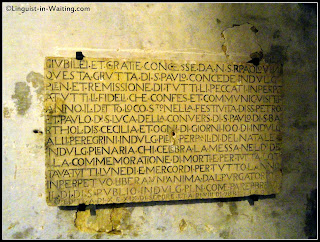 ©Linguist-in-Waiting.com
GIVBILEI ET GRATIE CONCESSE DA N S R PAOLO V
QVESTA GRVTTA DI S PAVLO CONCEDE INDVLG
PLEN ET REMISSIONE DI TVTTI LI PECCATI IN PERPET
A TVTTI LI FIDELI CHE CONFES ET COMMVNICAN
ANNO IL DI TTO LOCO STO NELLA FESTIVITA DI S PETRO
ET PAVLO DI S LVCA DELLA CONVERS DI S PAVLO S BA
RTHOL DI S CECILIA ET OGNI DI GIORNI 100 DI INDVLG
ALLI PEREGRINI INDVLG PLEN PER IL DI DEL NATALE
INDVLG PLENARIA CHI CELEBRA LA MESSA NEL DI DEL
LA COMMEMORATIONE DI MORTI E PER TVTTA L OT
TAVA TVTTI LI LVNEDI E MERCORDI PER TVTTO L ANNO
IN PERPETVO LIBERA VN ANIMA DAL PVRGATOR
IL DI DI S PVBLIO INDVLG PLEN COM